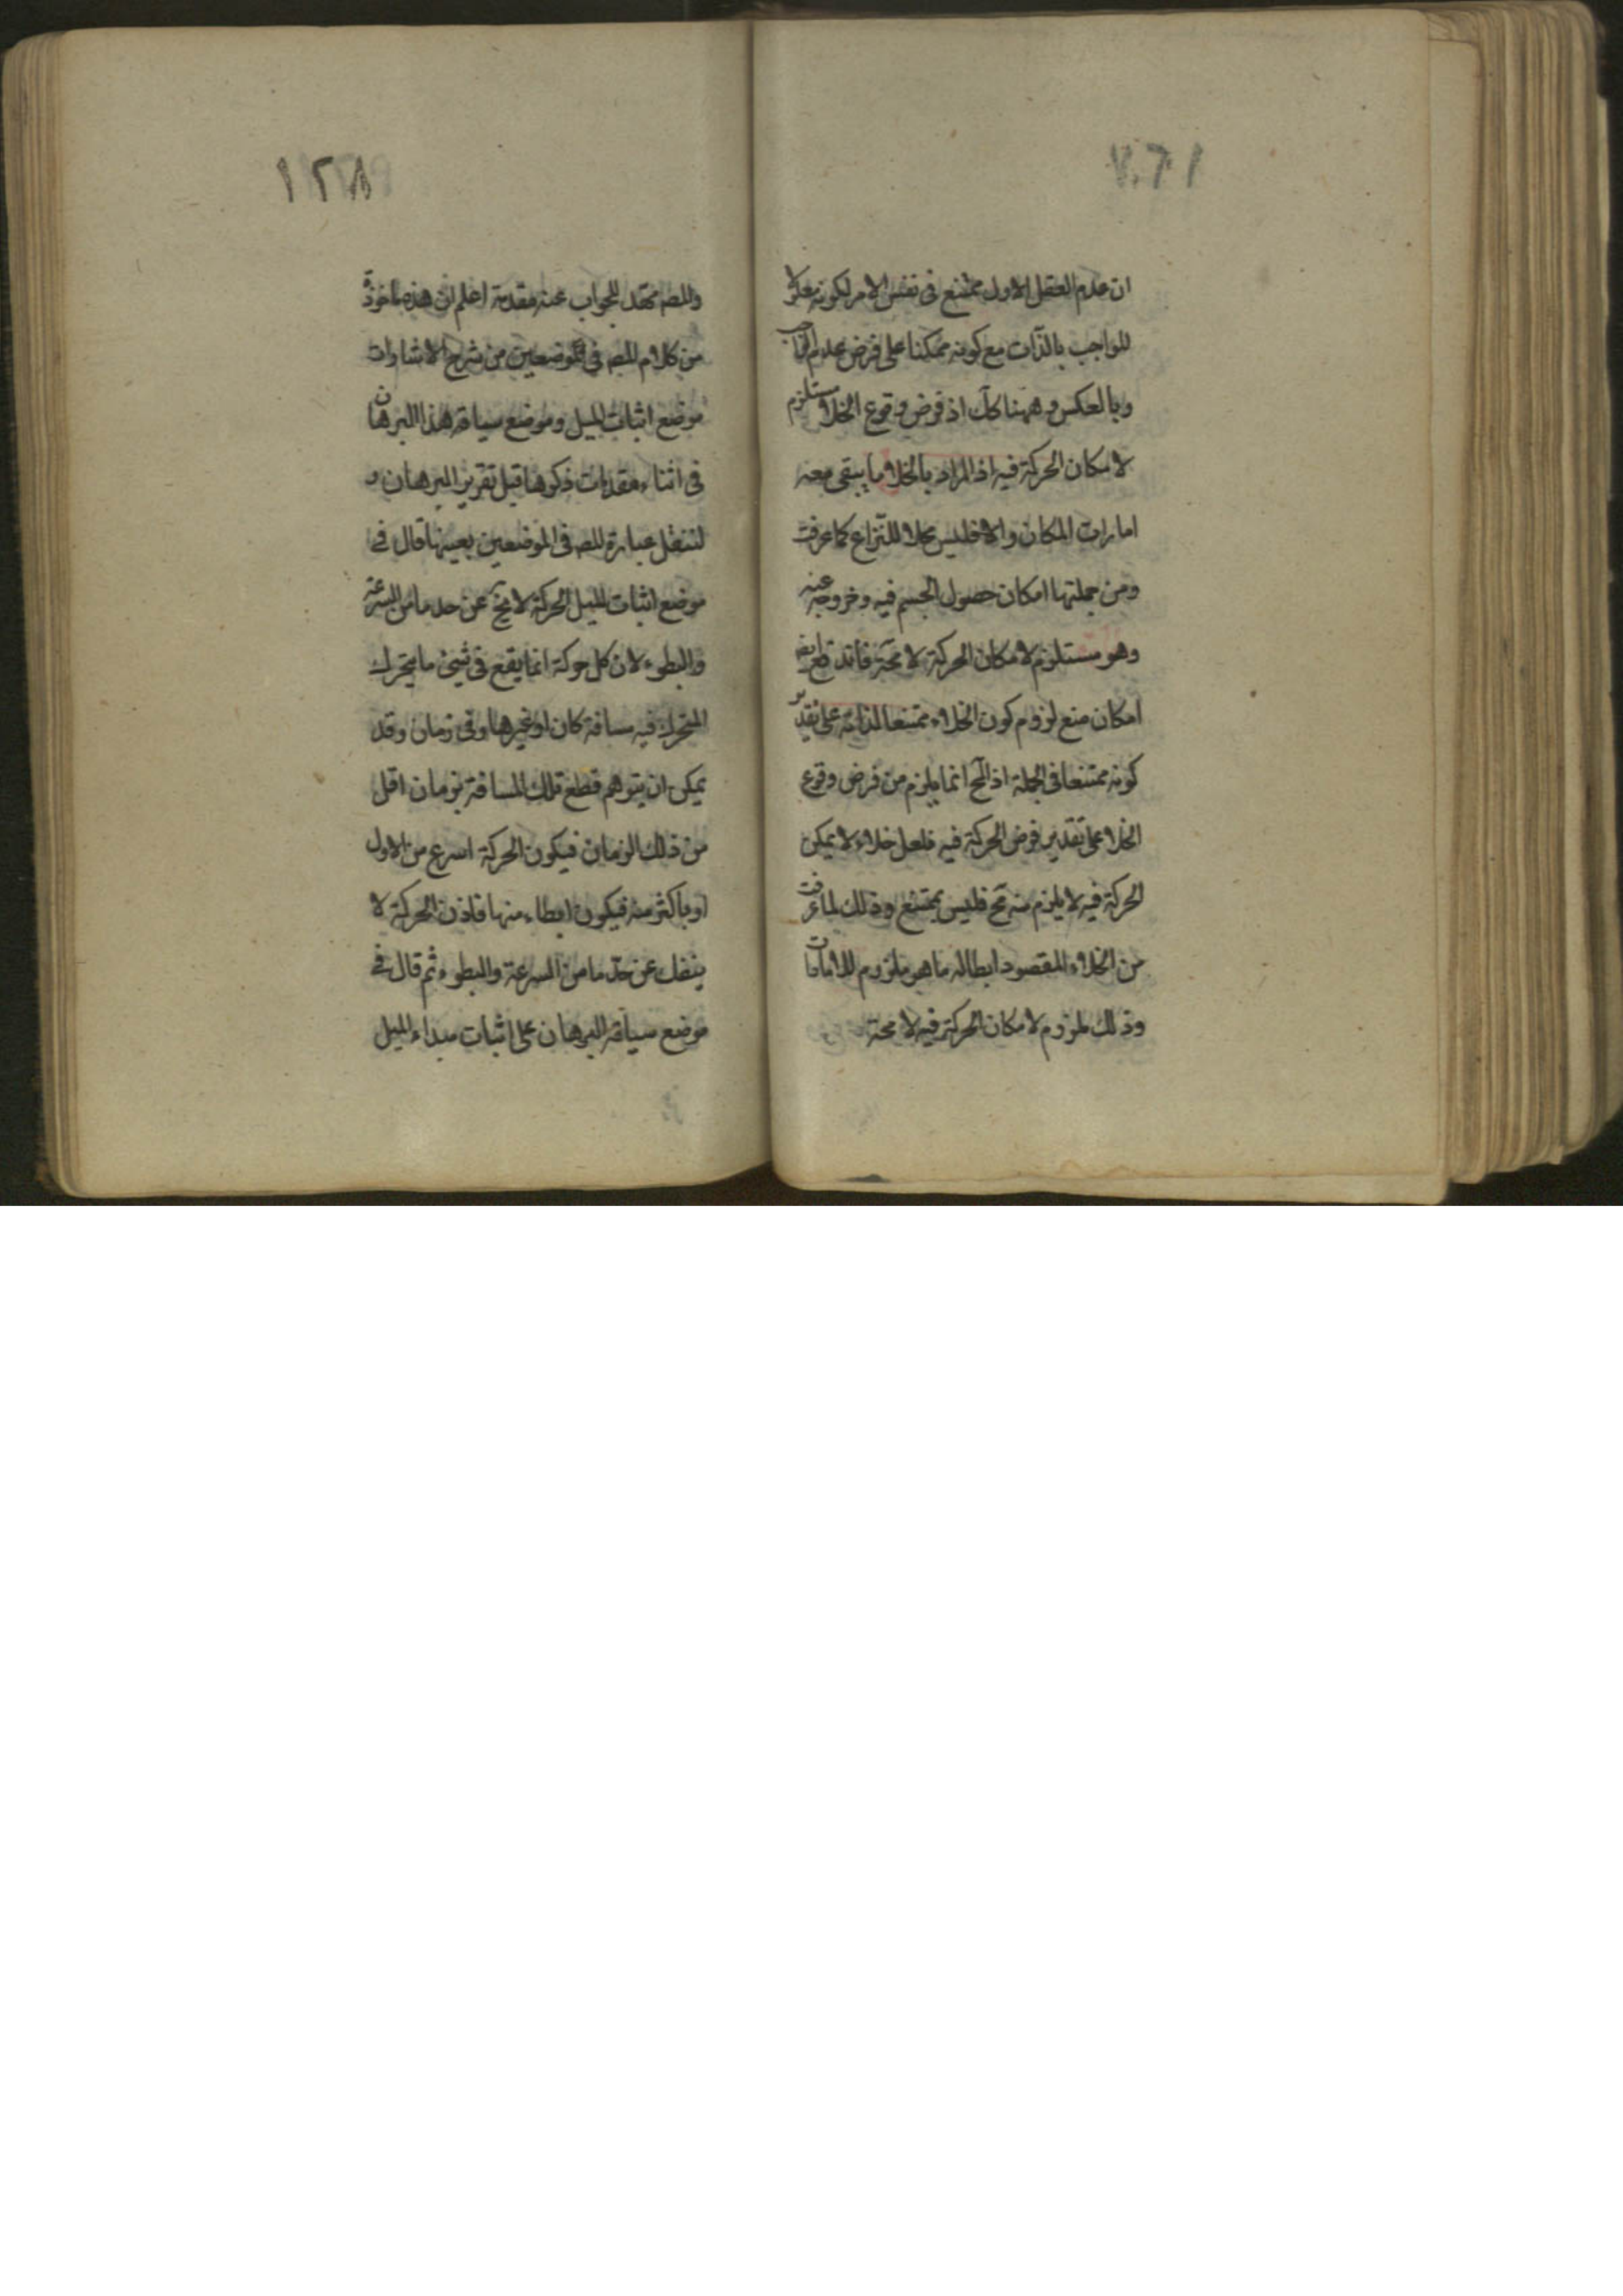 ان عدم العقل الاول ممتنع فى نفس الامر لكونه معلولا
للواجب بالذات مع كونه ممكنا على فرض عدم الواجب
وبالعكس وههنا كك اذ فرض وقوع الخلاء مستلزم
لامكان الحركة فيه اذ المراد بالخلاء ما يبقى معه
امارات المكان والا فليس محلا للنزاع كما عرفت
ومن جملتها امكان حصول الجسم فيه وخروجه عنه
وهو مستلزم لامكان الحركة لا محة فاند
امكان منع لزوم كون الخلاء ممتنعا لذاته على تقدير
كونه ممتنعا فى الجملة اذ المح انما يلزم من فرض وقوع
الخلا على تقدير فرض الحركة فيه فلعل خلاء لا يمكن
الحركة فيه لا يلزم منه مح فليس بممتنع وذلك لما عرفت
من الخلاء المقصود ابطاله ما هو ملزوم للامارات
وذلك ملزوم لامكان الحركة فيه لا محة
١٢٨
والمصه مهد للجواب عنه مقدمة اعلم ان هذه ماخوذة
من كلام المصه فى موضعين من شرح الاشارات
موضع اثبات الميل وموضع سياقه هذا البرهان
فى اثناء مقدمات ذكرها قبل تقرير البرهان و
لننقل عبارة المصه فى الموضعين بعينها قال فى
موضع اثبات الميل الحركة لا تخ عن حد ما من السرعة
والبطوء لان كل حركة انما يقع فى شيئ ما يتحرك
المتحرك فيه مسافة كان او غيرها وفى زمان وقد
يمكن ان يتوهم قطع تلك المسافة بزمان اقل
من ذلك الزمان فيكون الحركة اسرع من الاول
او باكثر منه فيكون ابطاء منها فاذن الحركة لا
ينفك عن حد ما من السرعة والبطوء ثم قال فى
موضع سياقه البرهان على اثبات مبداء الميل